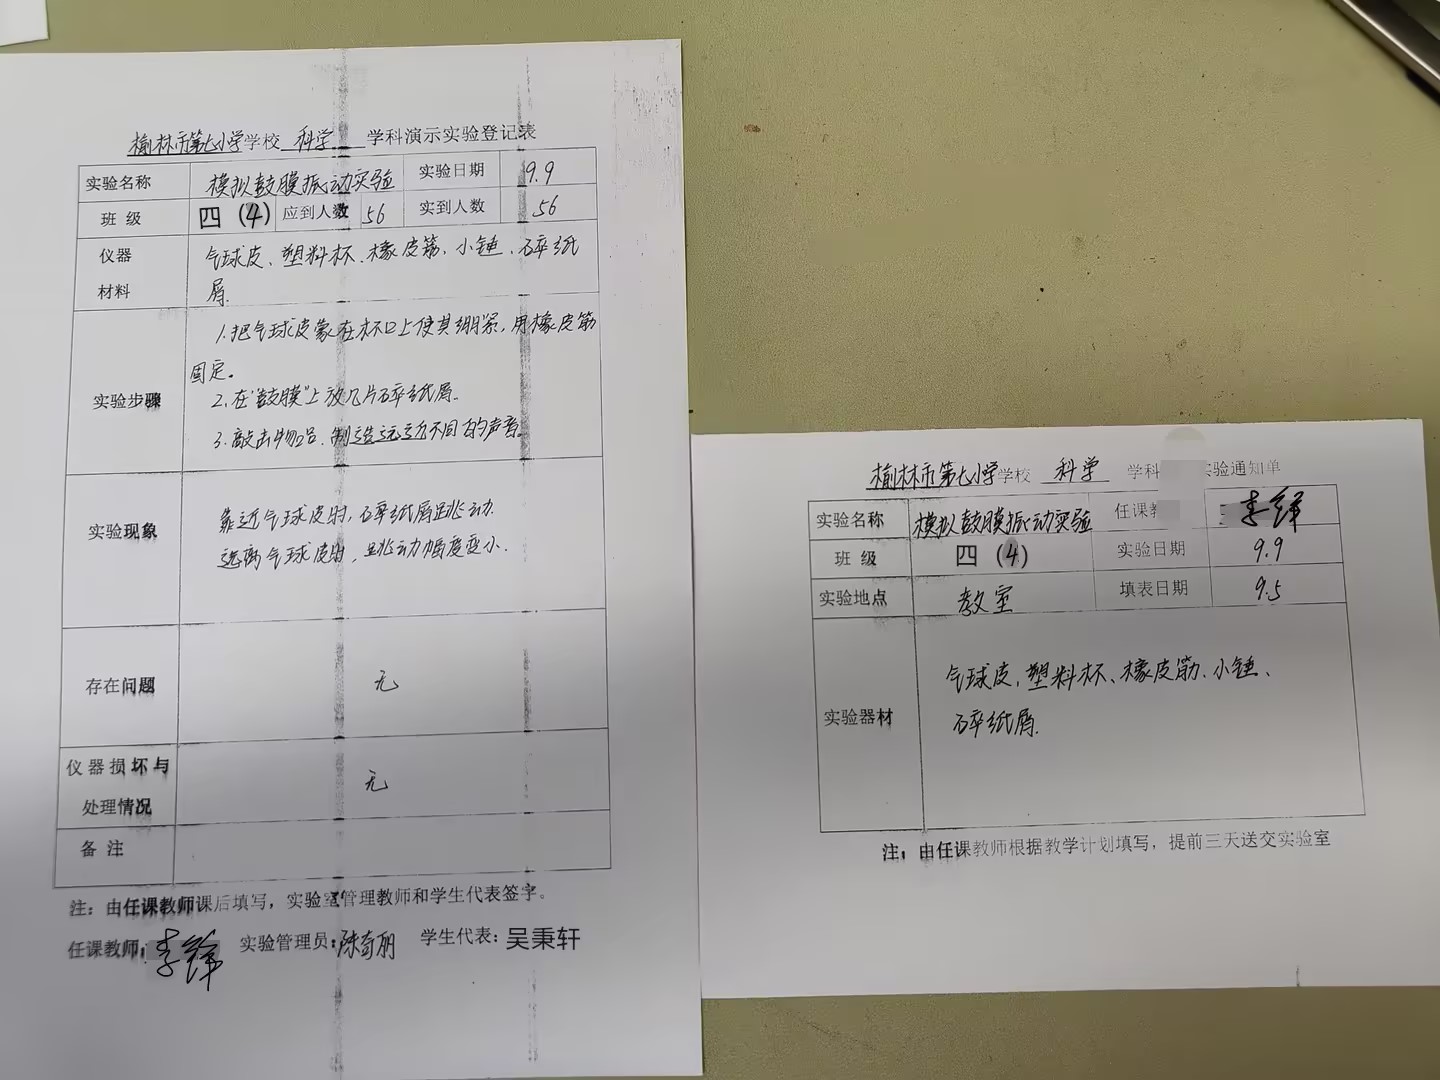 榆林市第七小学学校 科学 学科演示实验登记表
实验名称 模拟鼓膜振动实验 实验日期 9.9
班 级 四 (4) 应到人数 56 实到人数 56
仪器 气球皮、塑料杯、橡皮筋、小锤、碎纸
材料 屑.
1.把气球皮蒙在杯口上使其绷紧,用橡皮筋
固定。
2.在"鼓膜"上放几片碎纸屑.
实验步骤
3.敲击物品.制造远近不同的声音.
实验现象
靠近气球皮时,碎纸屑跳动.
远离气球皮时,跳动幅度变小.
存在问题 无
仪器损坏与
处理情况 无
备 注
注:由任课教师课后填写,实验室管理教师和学生代表签字。
任课教师: 李锋 实验管理员:陈奇丽 学生代表:吴秉轩
榆林市第七小学学校 科学 学科 实验通知单
实验名称 模拟鼓膜振动实验 任课教 李锋
班 级 四 (4) 实验日期 9.9
实验地点 教室 填表日期 9.5
实验器材
气球皮、塑料杯、橡皮筋、小锤、
碎纸屑.
注:由任课教师根据教学计划填写,提前三天送交实验室